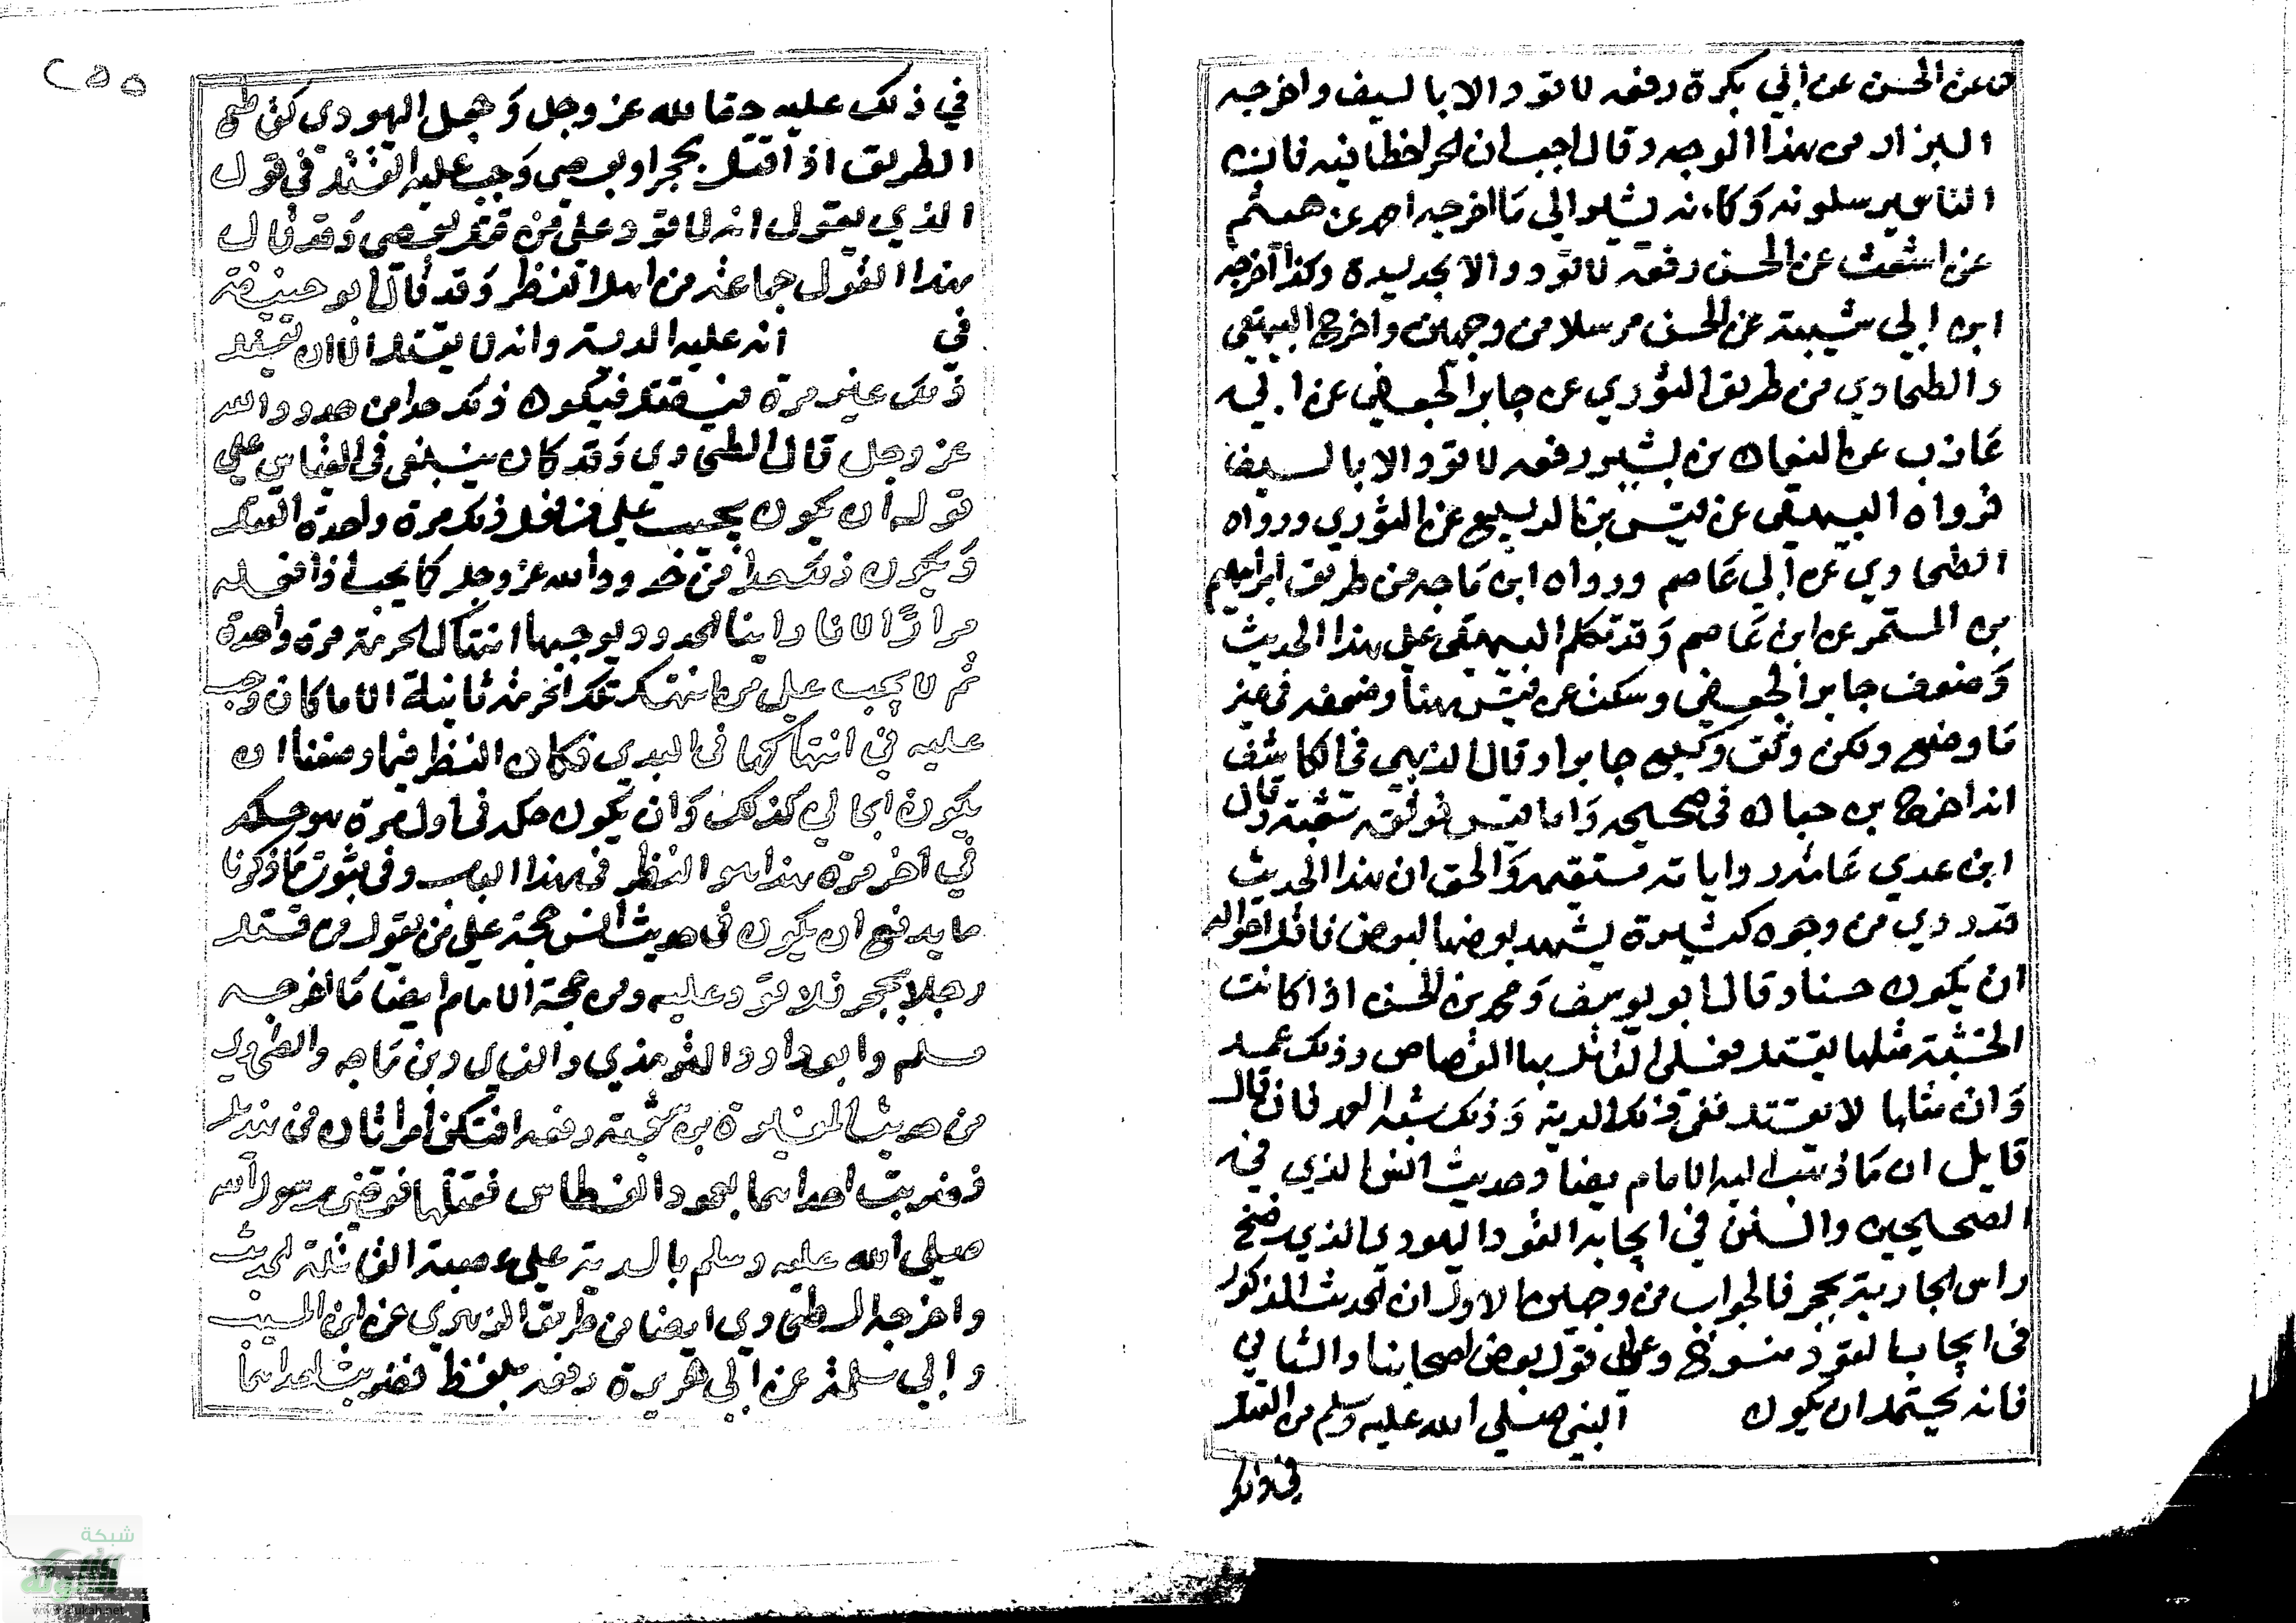 عن الحسن عن أبي بكرة رفعه لا قود الا بالسيف واخرجه
البزار من هذا الوجه وقال احسب ان الحر اخطا فيه فان
الناس يرسلونه وكانه يشير الى ما اخرجه احمد عن هشيم
عن اشعث عن الحسن رفعه لا قود الا بحديدة وكذا اخرجه
ابن ابي شيبة عن الحسن مرسلا من وجهين واخرج البيهقي
والطحاوي من طريق الثوري عن جابر الجعفي عن ابي
عازب عن النعمان بن بشير رفعه لا قود الا بالسيف
فرواه البيهقي عن قيس بن الربيع عن الثوري ورواه
الطحاوي عن أبي عاصم ورواه ابن ماجه من طريق ابراهيم
بن المستمر عن ابن عاصم وقد تكلم البيهقي على هذا الحديث
وضعف جابر الجعفي وسكت عن قيس هنا وضعفه في غير
ما وضع ولكن وثق وكيع جابرا وقال الذهبي في الكاشف
انه اخرج بن حبان في صحيحه واما قيس فوثقه شعبة وقال
ابن عدي عامة رواياته مستقيمة والحق ان هذا الحديث
قد روي من وجوه كثيرة يشهد بعضها لبعض فاقل احواله
ان يكون حسنا وقال ابو يوسف ومحمد بن الحسن اذا كانت
الخشبة مثلها يقتل فعلى القاتل بها القصاص وذلك عمد
وان مثلها لا يقتل ففي ذلك الدية وذلك شبه العمد فان قال
قايل ان ما ذهب اليه الامام يضا وحديث انس الذي في
الصحيحين والسنن في ايجابه القود اليهودي الذي رضخ
راس الجارية بحجر فالجواب من وجهين الاول ان الحديث المذكور
في ايجاب القود منسوخ وعلى قول بعض اصحابنا والثاني
فانه يحتمل ان يكون النبي صلى الله عليه وسلم من القتل
في ذلك
٢٥٥
في ذلك عليه حقا لله عز وجل وجعل اليهودي كقاطع
الطريق اذا قتل بحجر او بعصى وجب عليه القتل في قول
الذي يقول انه لا قود على من قتل بعصى وقد قال
بهذا القول جماعة من اهل النظر وقد قال ابو حنيفة
في انه عليه الدية وانه لا يقتل الا ان يفعل
ذلك غير مرة فيقتل فيكون ذلك حدا من حدود الله
عز وجل قال الطحاوي وقد كان ينبغي في القياس على
قوله أن يكون يجب على من فعل ذلك مرة واحدة القتل
ويكون ذلك حدا من حدود الله عز وجل كما يجب اذا فعله
مرارًا لانا راينا الحدود يوجبها انتهاك الحرمة مرة واحدة
ثم لا يجب على من انتهك تلك الحرمة ثانية الا ما كان وجب
عليه في انتهاكها في البدي فكان النظر فيما وصفنا ان
يكون الجاني كذلك وان يكون حكمه في اول مرة هو حكمه
في آخر مرة هذا هو النظر في هذا الباب وفي ثبوت ما ذكرنا
ما يدفع ان يكون في حديث انس حجة على من يقول من قتل
رجلا بحجر فلا قود عليه ومن حجة الامام ايضا ما اخرجه
مسلم وابو داود والترمذي والنساي وبن ماجه والطحاوي
من حديث المغيرة بن شعبة رفعه اقتتلت امراتان من هذيل
فضربت احداهما بعمود الفسطاس فقتلها فقضى رسول الله
صلى الله عليه وسلم بالدية على عصبة القاتلة لحديث
واخرجه الطحاوي ايضا من طريق الزهري عن ابن المسيب
وابي سلمة عن ابي هريرة رفعه بلفظ فضربت احداهما
شبكة
الألوكة
www.alukah.net